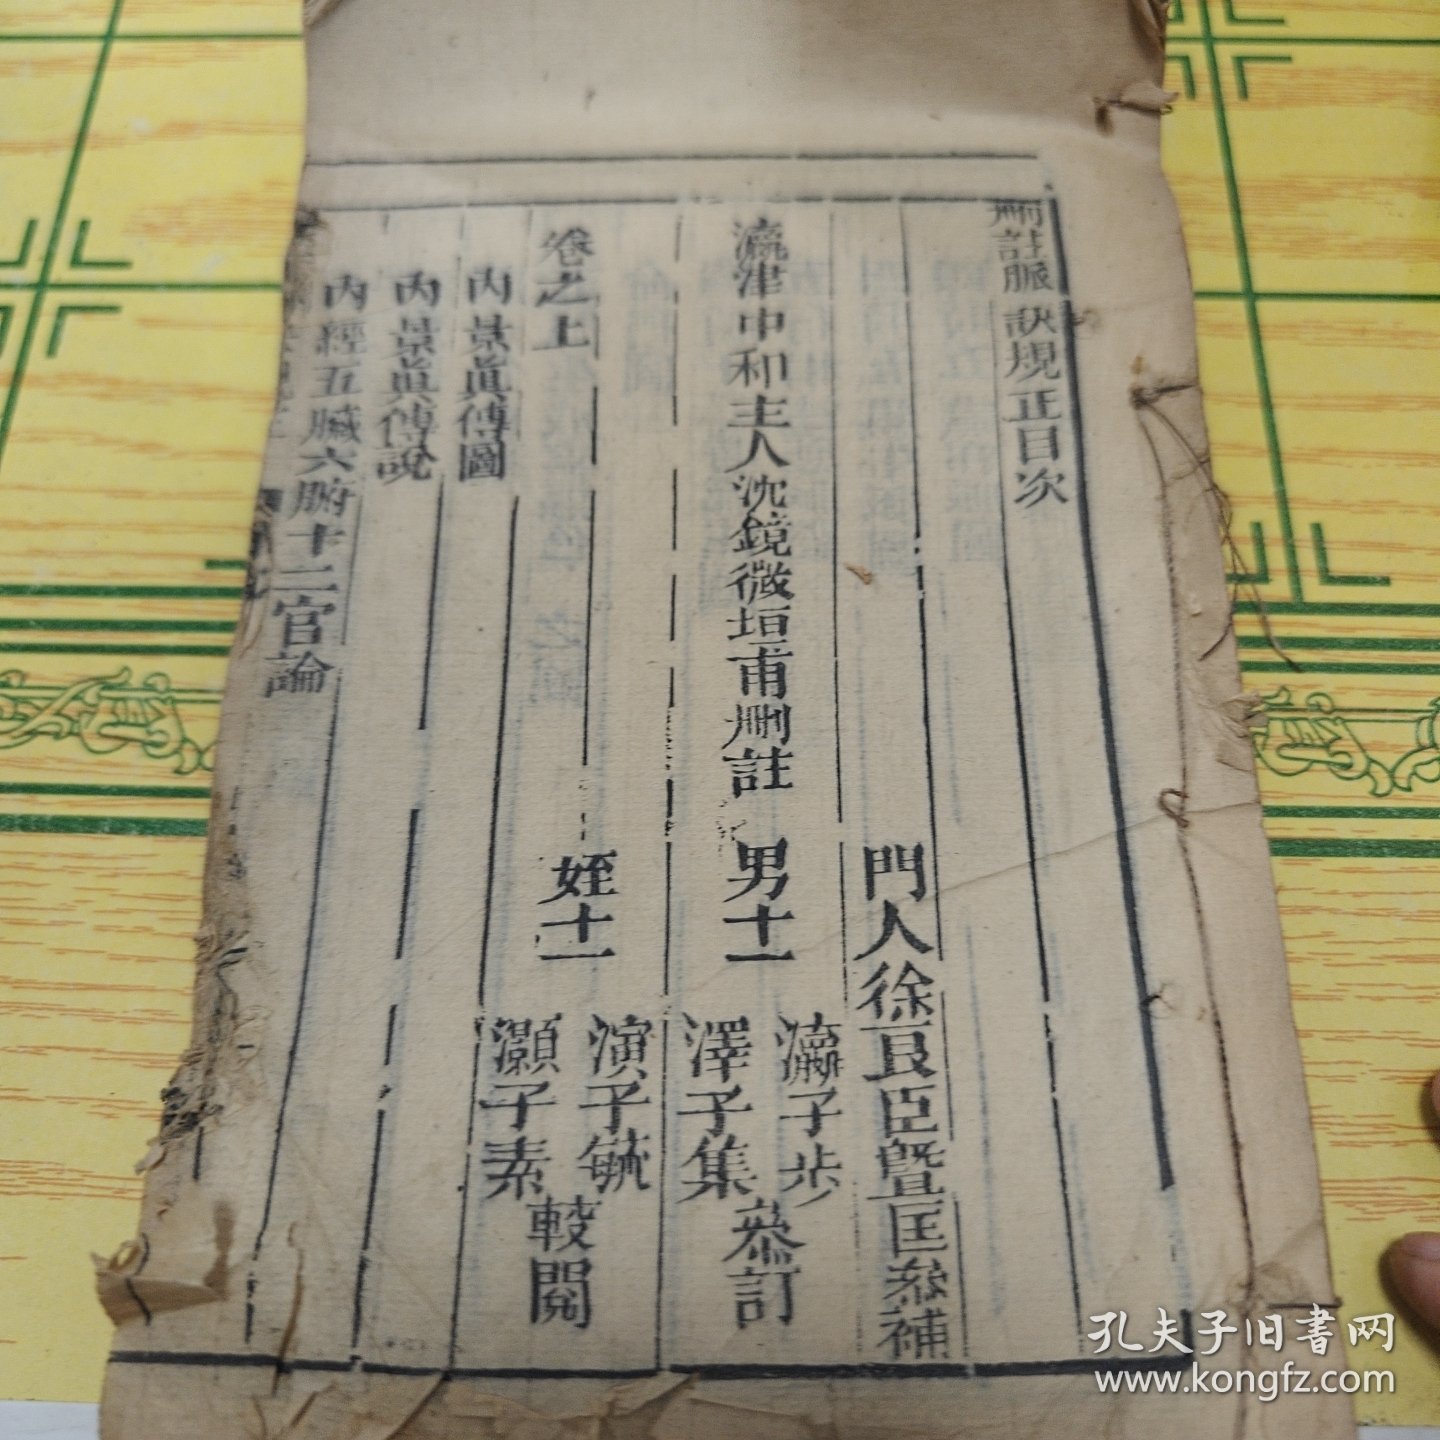 刪註脈訣規正目次
門人徐良臣暨匡叅補
瀛津中和主人沈鏡微垣甫刪註
男十一
瀛子步
澤子集
叅訂
姪十一
演子毓
灝子素
較閱
卷之上
內景眞傳圖
內景眞傳說
內經五臟六腑十二官論
孔夫子旧书网
www.kongfz.com